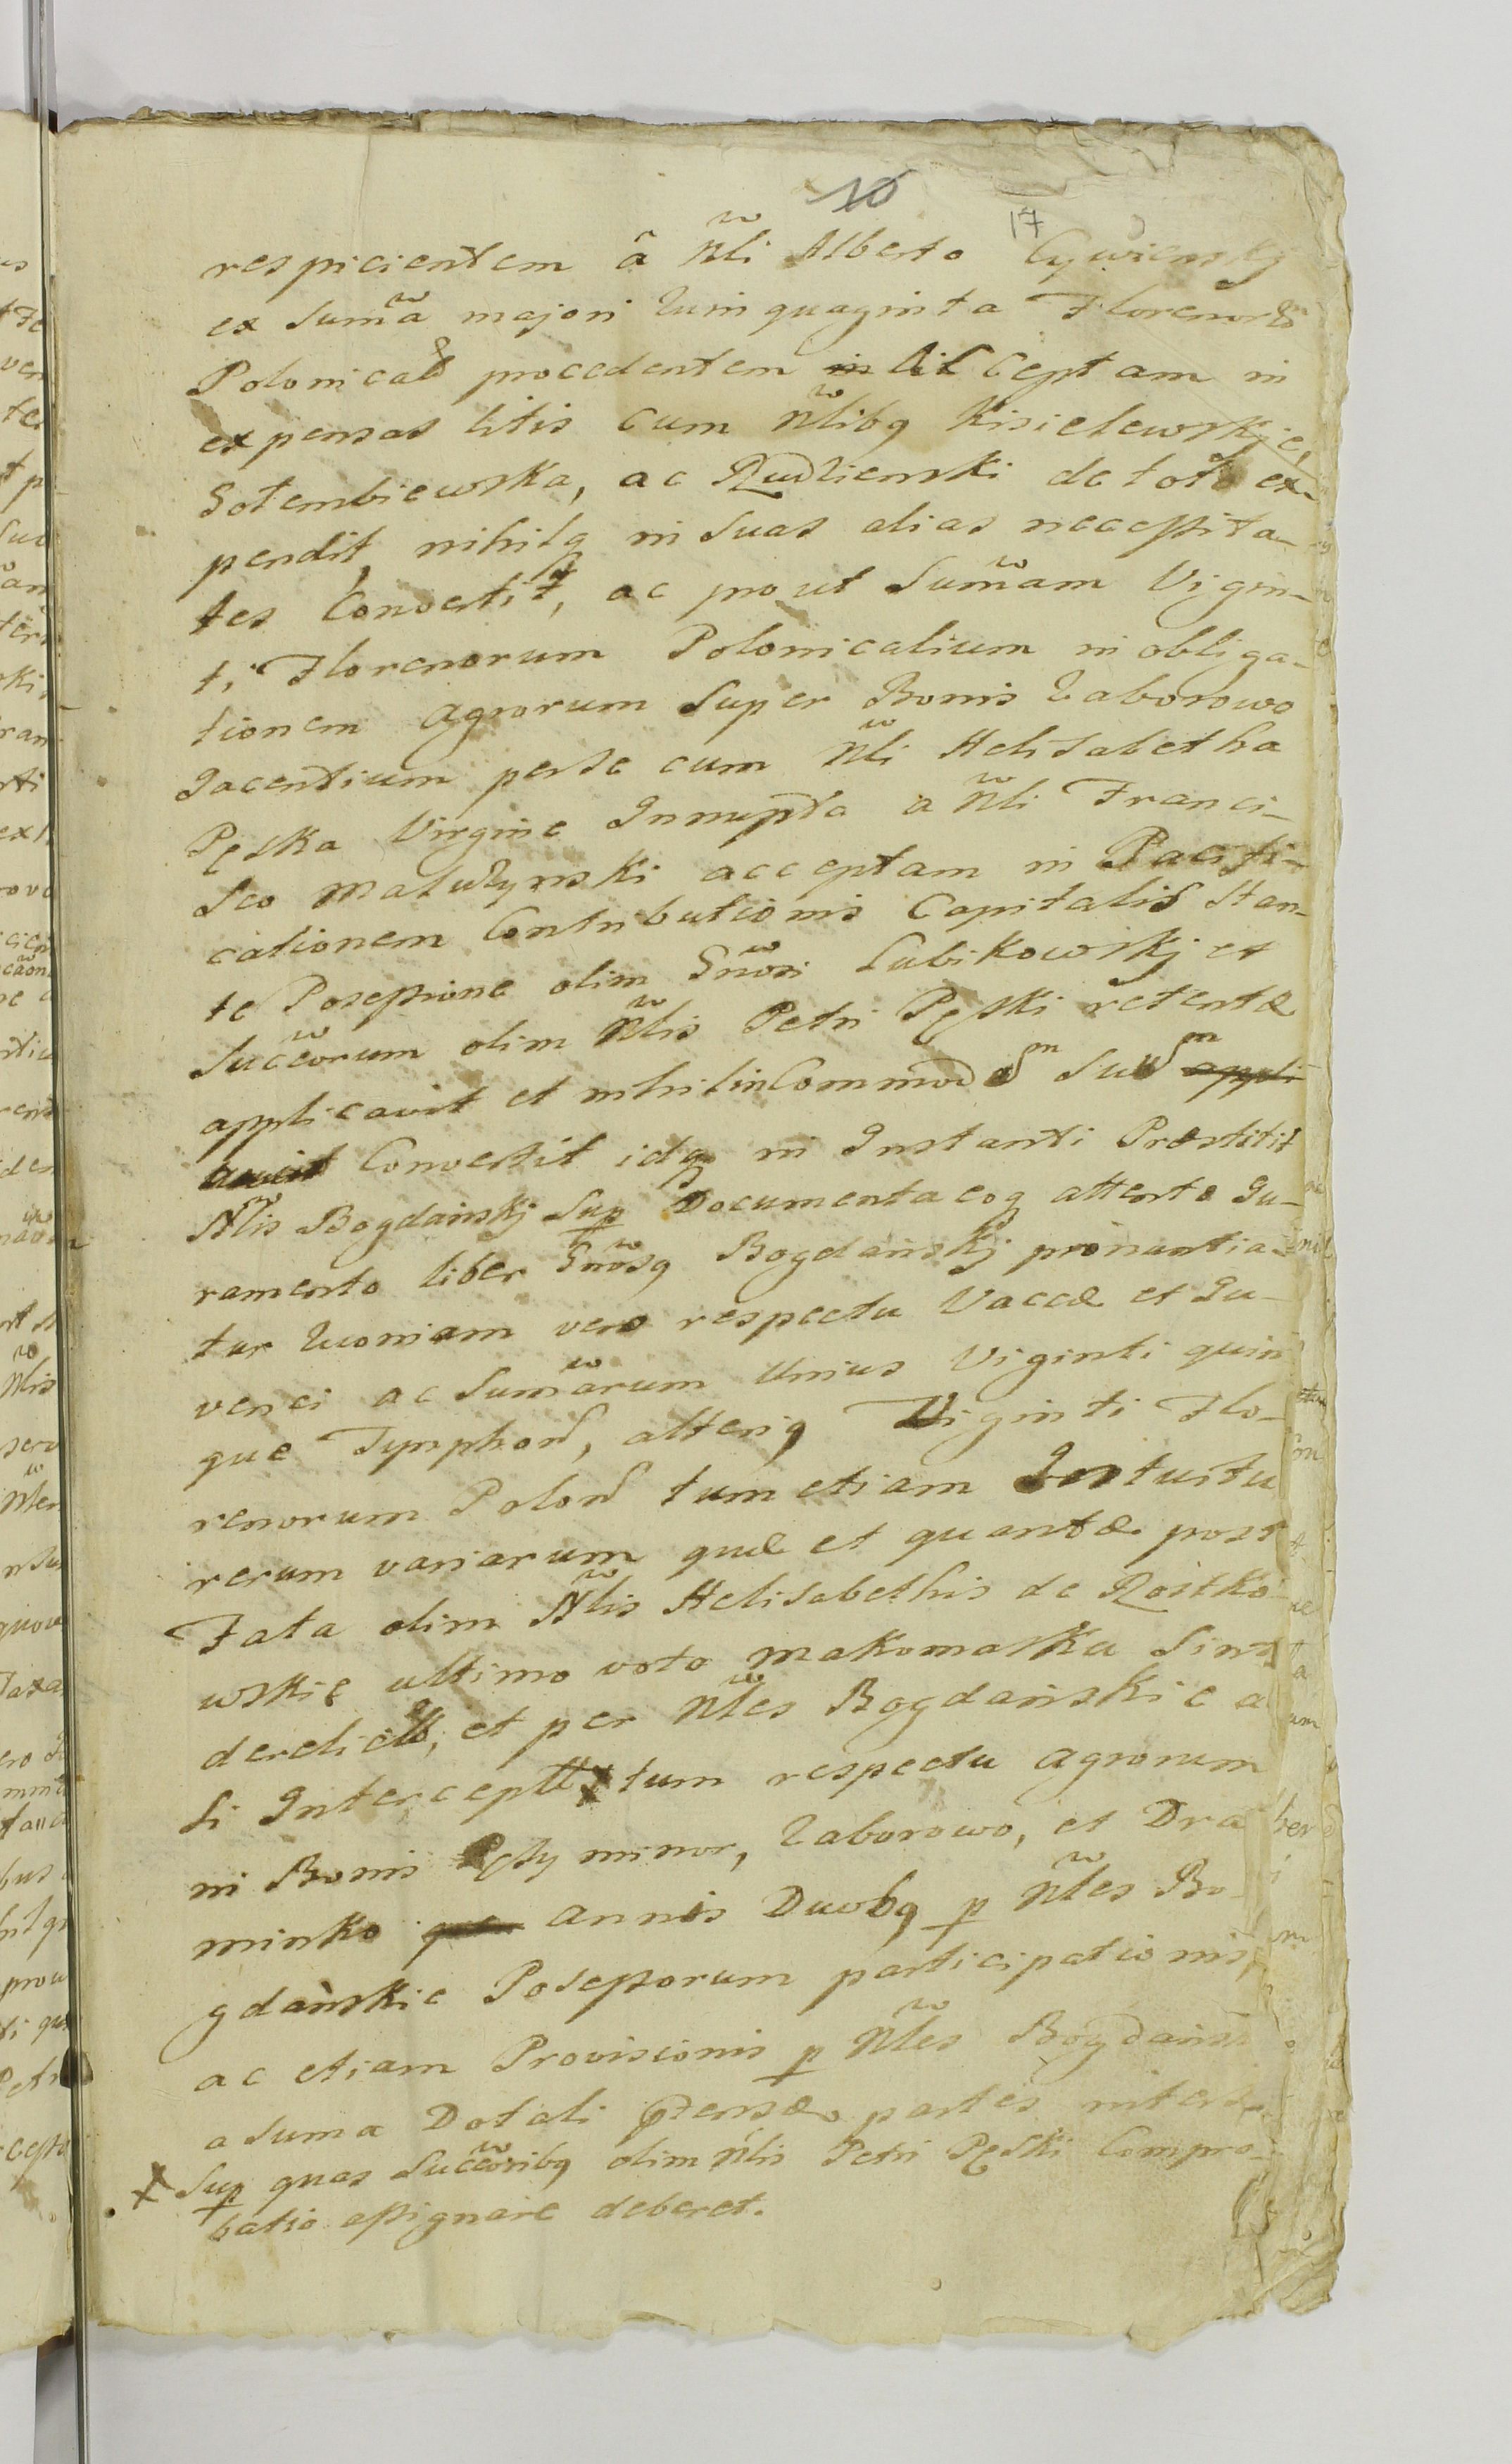 10
17
respicientem â Nli Alberto Cywiensky
ex Suma majori Quinquaginta Florenor
Polonical procedentem acceptam in
expensas litis cum Nlibq Kisielewskie,
Gołembiewska, ac Rudzienski de toto ex-
pendit, nihilq in Suas alias necessita-
tes Convertit, ac prout Sumam Vigin-
ti Florenorum Polonicalium in obliga-
tionem agrorum Super Bonis Zaborowo
Jacentium per se cum Nli Helisabetha
Pęska Virgine Innupta a Nli Franci-
sco Matuszynski acceptam in Pacifi-
cationem Contributionis Capitalis Stan-
te Possessione olim Gnosi Lubikowskj et
Succorum olim Nlis Petri Pęski retentæ
applicavit et nihil in Commodum Suum appli
cavit Convertit idq in Instanti Præstitit
Nlis Bogdanskj Sup Documenta eoq attento Ju-
ramento liber Gnosq Bogdanskj pronuntia-
tur Quoniam vero respectu Vaccæ et Ju-
venci ac Sumarum Unius Viginti quin
que Tymphor, alteriq Viginti Flo-
renorum Polon tum etiam Intuitu
rerum variarum quæ et quantæ post
Fata olim Nlis Helisabethis de Rostko
wskie ultimo voto Makomaska Sint
derelictæ, et per Nles Bogdanskie a
li Interceptæ X tum respectu agrorum
in Bonis Pęsy minor, Zaborowo, et Dra
minko annis Duobq p Nles Bo-
gdanskie Possessorum participationis,
ac etiam Provisionis p Nles Bogdansk
a suma Dotali pensæ partes inter se
X Sup quas Succoribq olim Nlis Petri Pęski Compro-
batio assignare deberet.